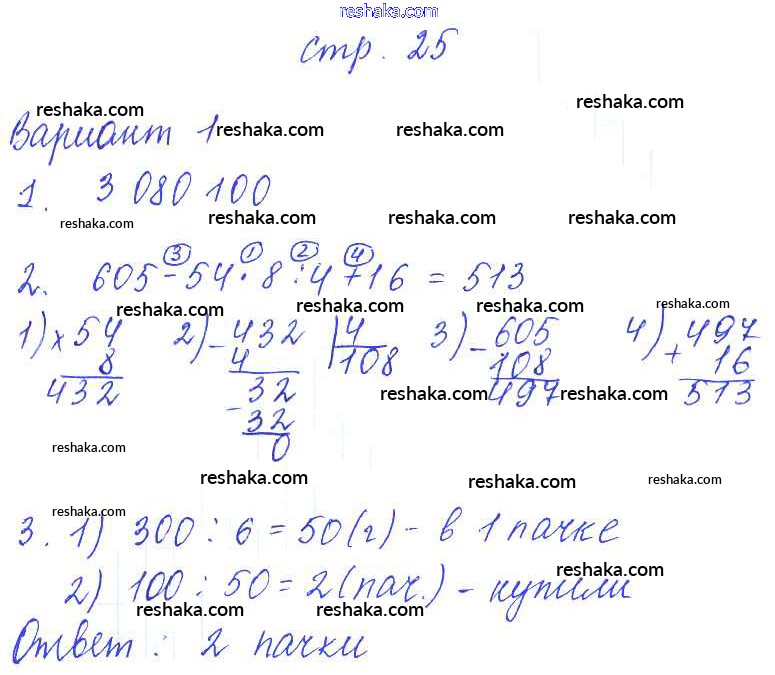 reshaka.com
стр. 25
reshaka.com reshaka.com
Вариант 1 reshaka.com reshaka.com
1. 3 080 100
reshaka.com reshaka.com reshaka.com reshaka.com
3 1 2 4
2. 605 - 54 · 8 : 4 + 16 = 513
reshaka.com reshaka.com reshaka.com reshaka.com
1) × 54 2) - 432 | 4 3) - 605 4) + 497
8 4 108 108 16
432 32 497 513
reshaka.com reshaka.com
- 32
0
reshaka.com reshaka.com reshaka.com reshaka.com
reshaka.com
3. 1) 300 : 6 = 50 (г) - в 1 пачке
reshaka.com
2) 100 : 50 = 2 (пач.) - купили
reshaka.com reshaka.com
Ответ : 2 пачки